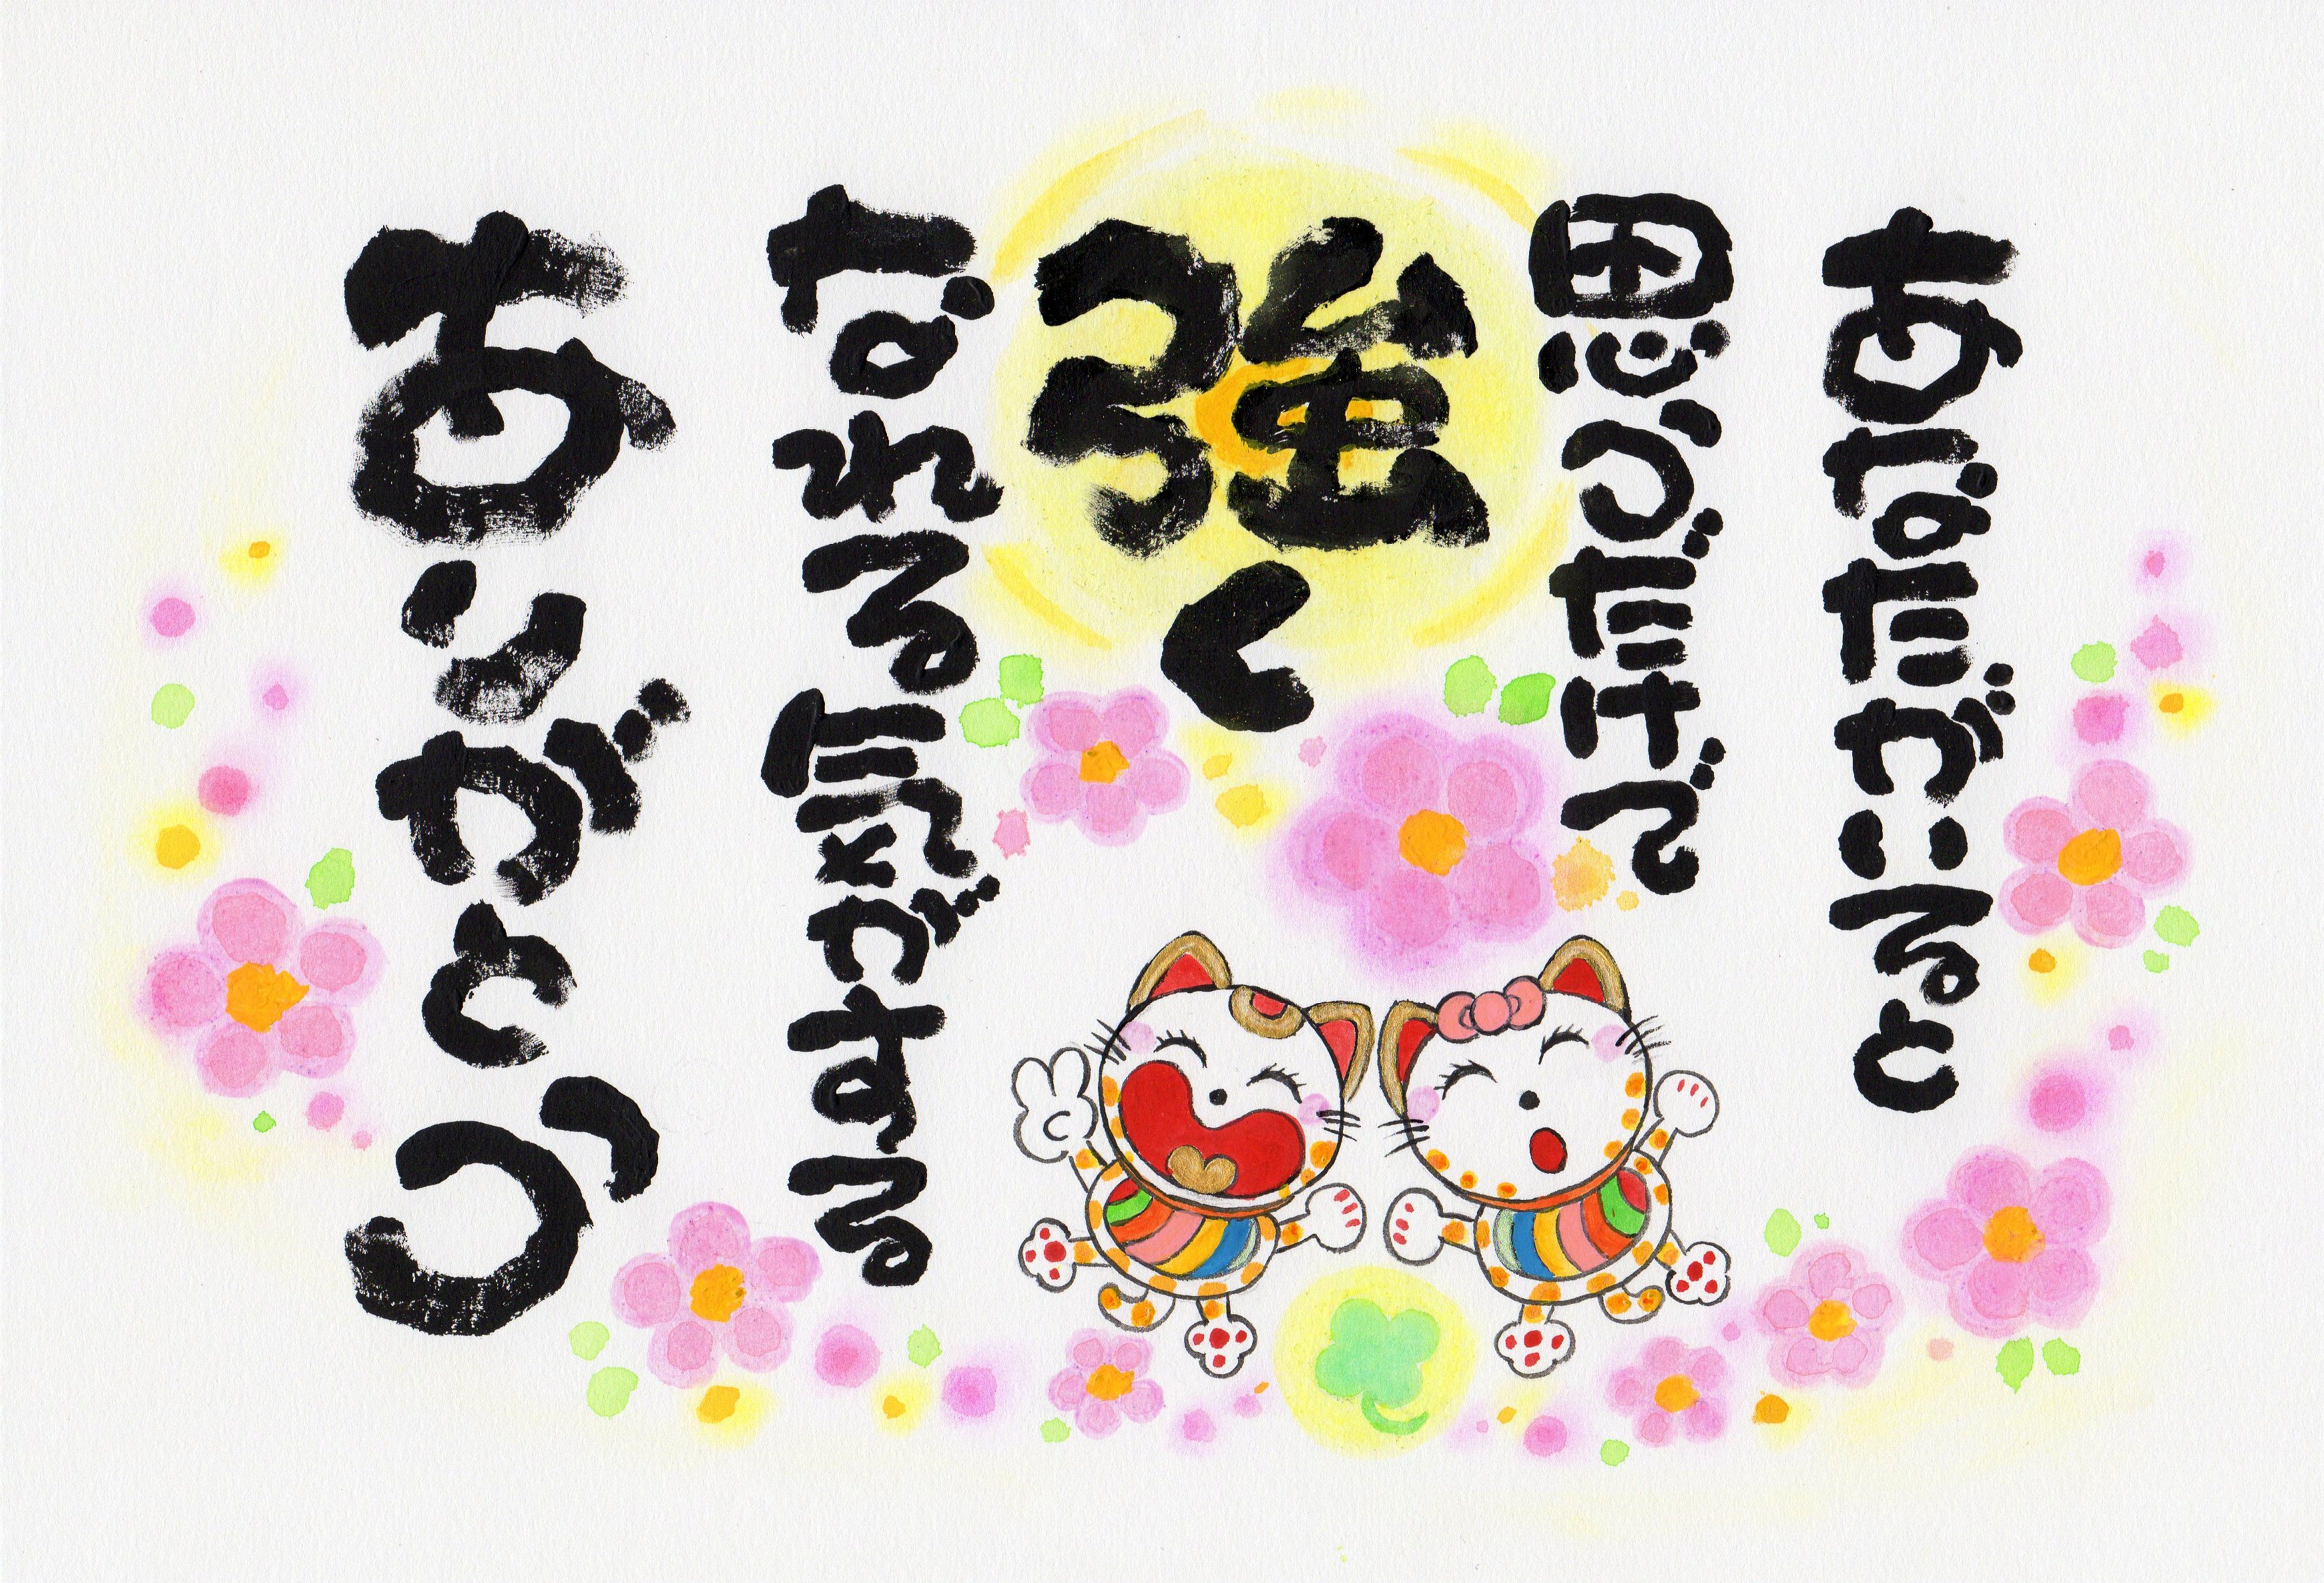 あなたがいると
思うだけで
強く
なれる気がする
ありがとう